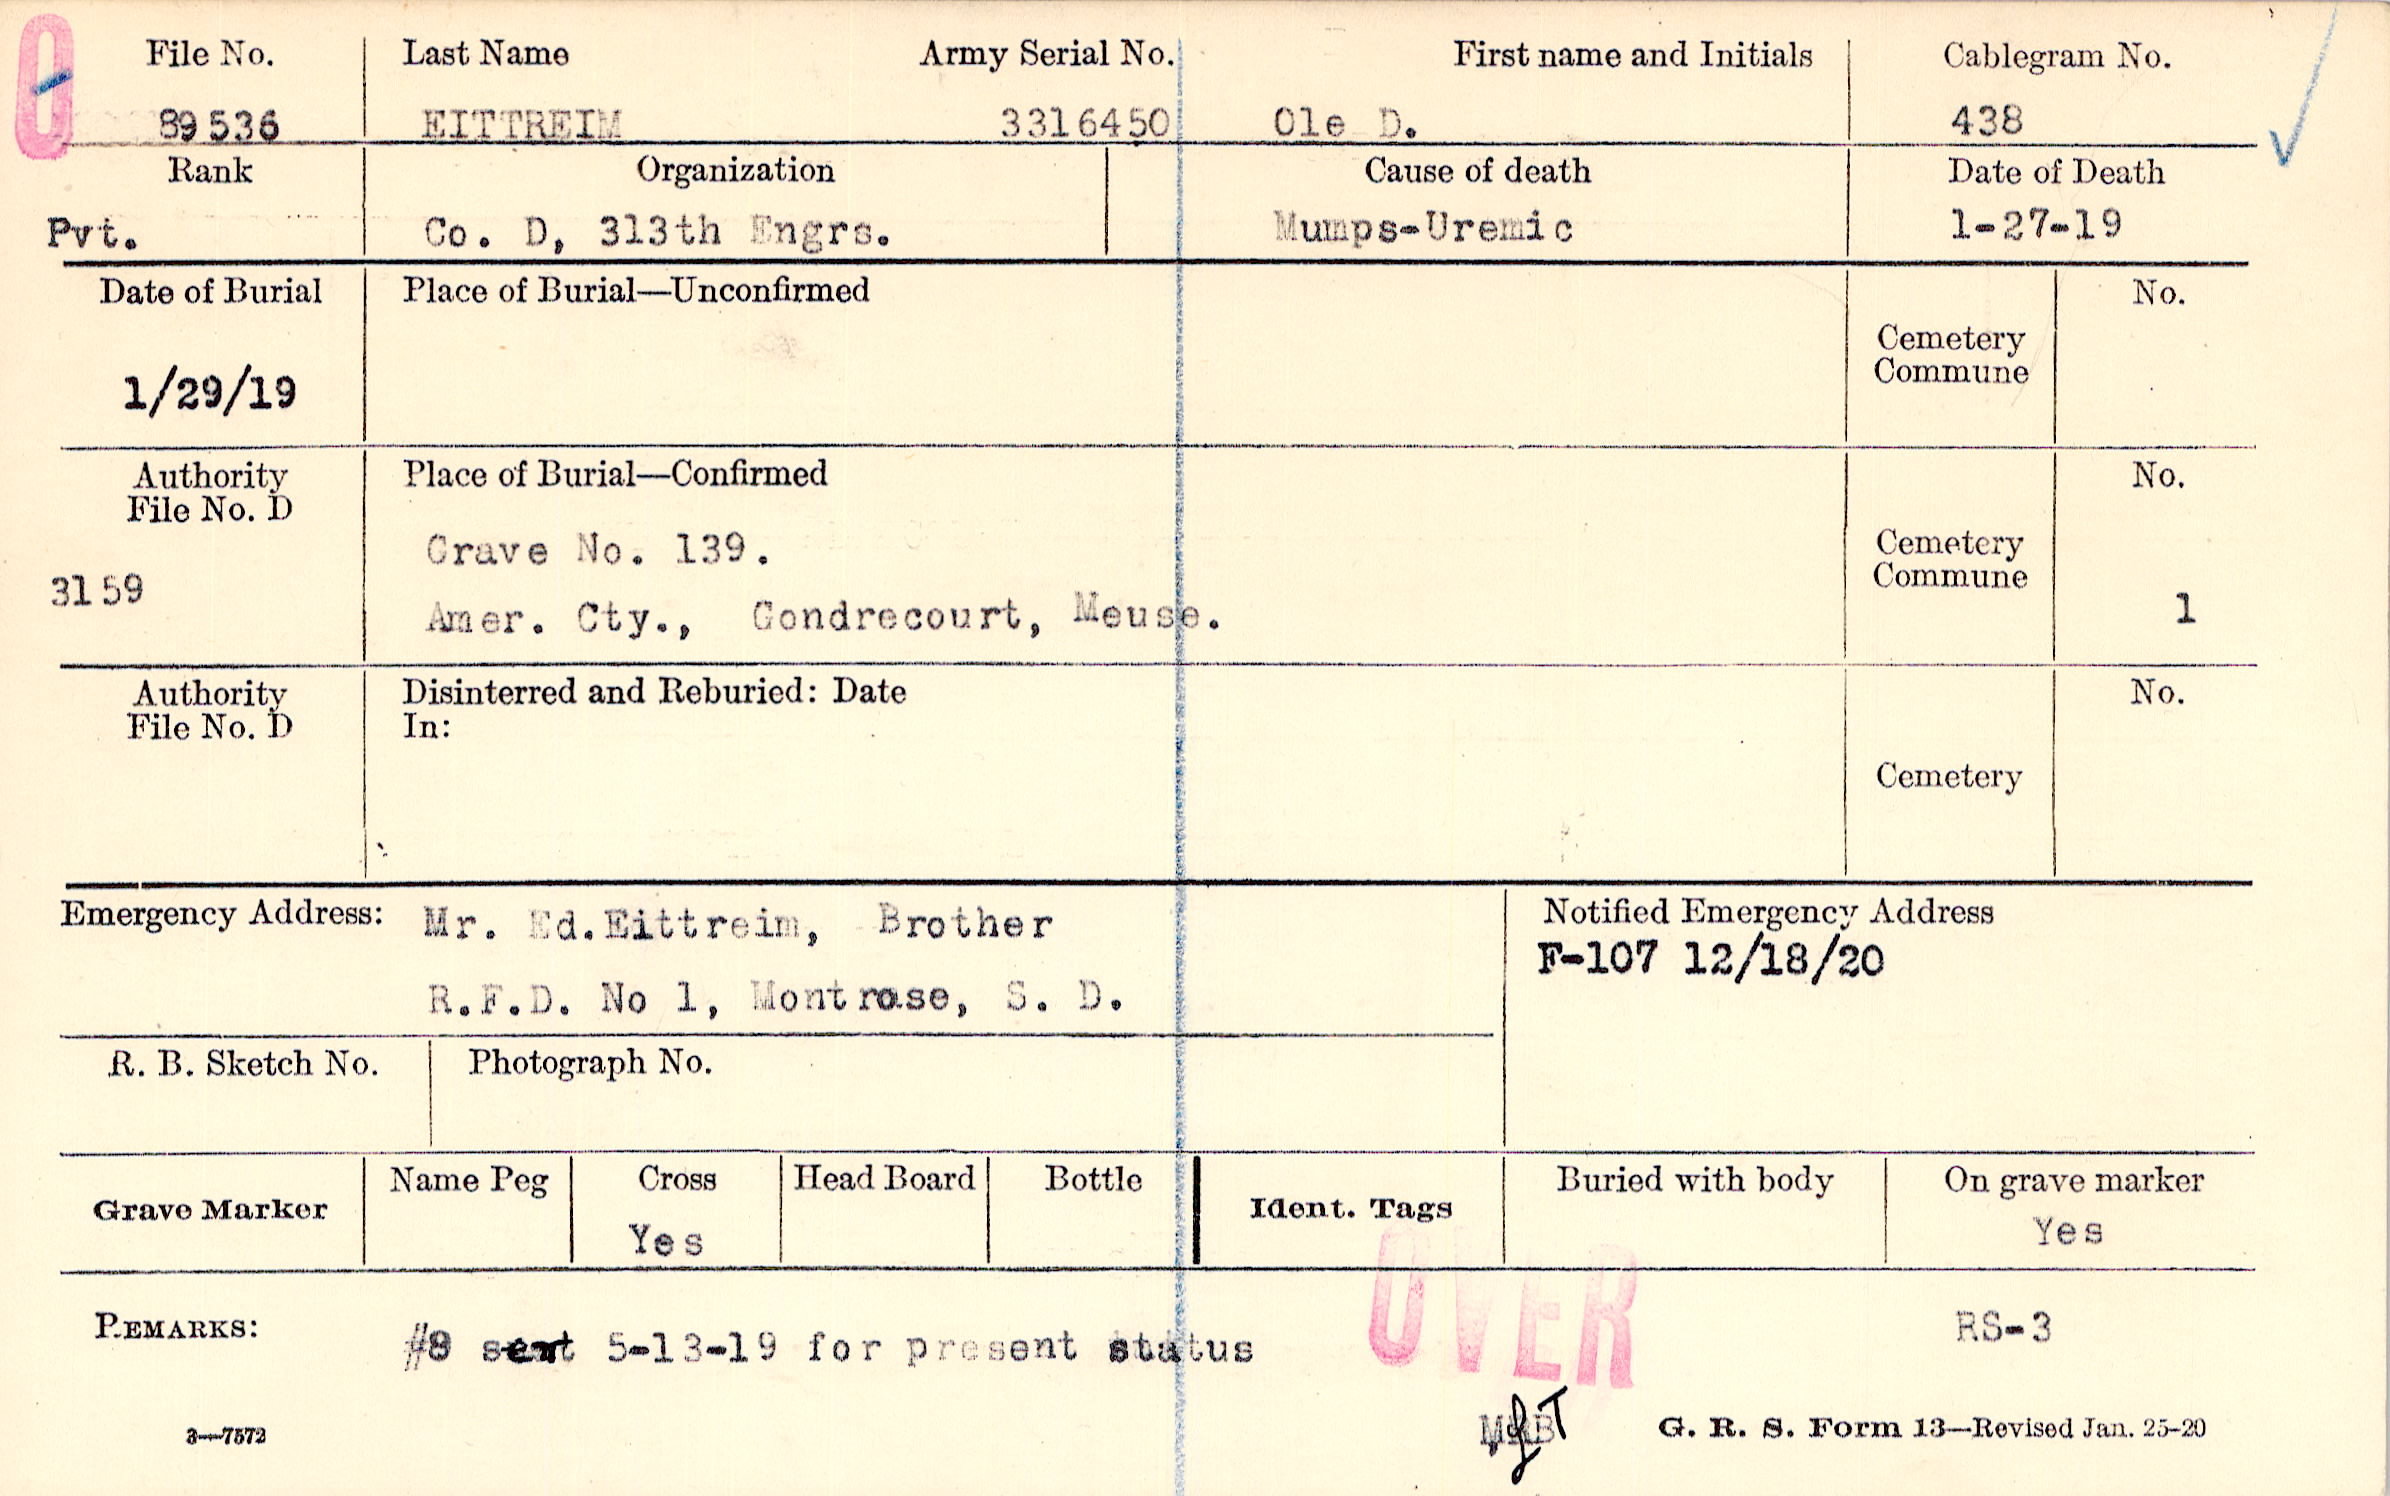 O
File No. Last Name Army Serial No. First name and Initials Cablegram No.
89536 EITTREIM 3316450 Ole D. 438
Rank Organization Cause of death Date of Death
Pvt. Co. D, 313th Engrs. Mumps-Uremic 1-27-19
Date of Burial Place of Burial—Unconfirmed No.
Cemetery
Commune
1/29/19
Authority Place of Burial—Confirmed No.
File No. D
Grave No. 139.
Cemetery
Commune
3159
Amer. Cty., Gondrecourt, Meuse. 1
Authority Disinterred and Reburied: Date No.
File No. D In:
Cemetery
Emergency Address: Mr. Ed.Eittreim, Brother
R.F.D. No 1, Montrose, S. D.
Notified Emergency Address
F-107 12/18/20
R. B. Sketch No. Photograph No.
Grave Marker Name Peg Cross Head Board Bottle Ident. Tags Buried with body On grave marker
Yes Yes
OVER
REMARKS: #8 sent 5-13-19 for present status RS-3
3—7572 G. R. S. Form 13—Revised Jan. 25-20